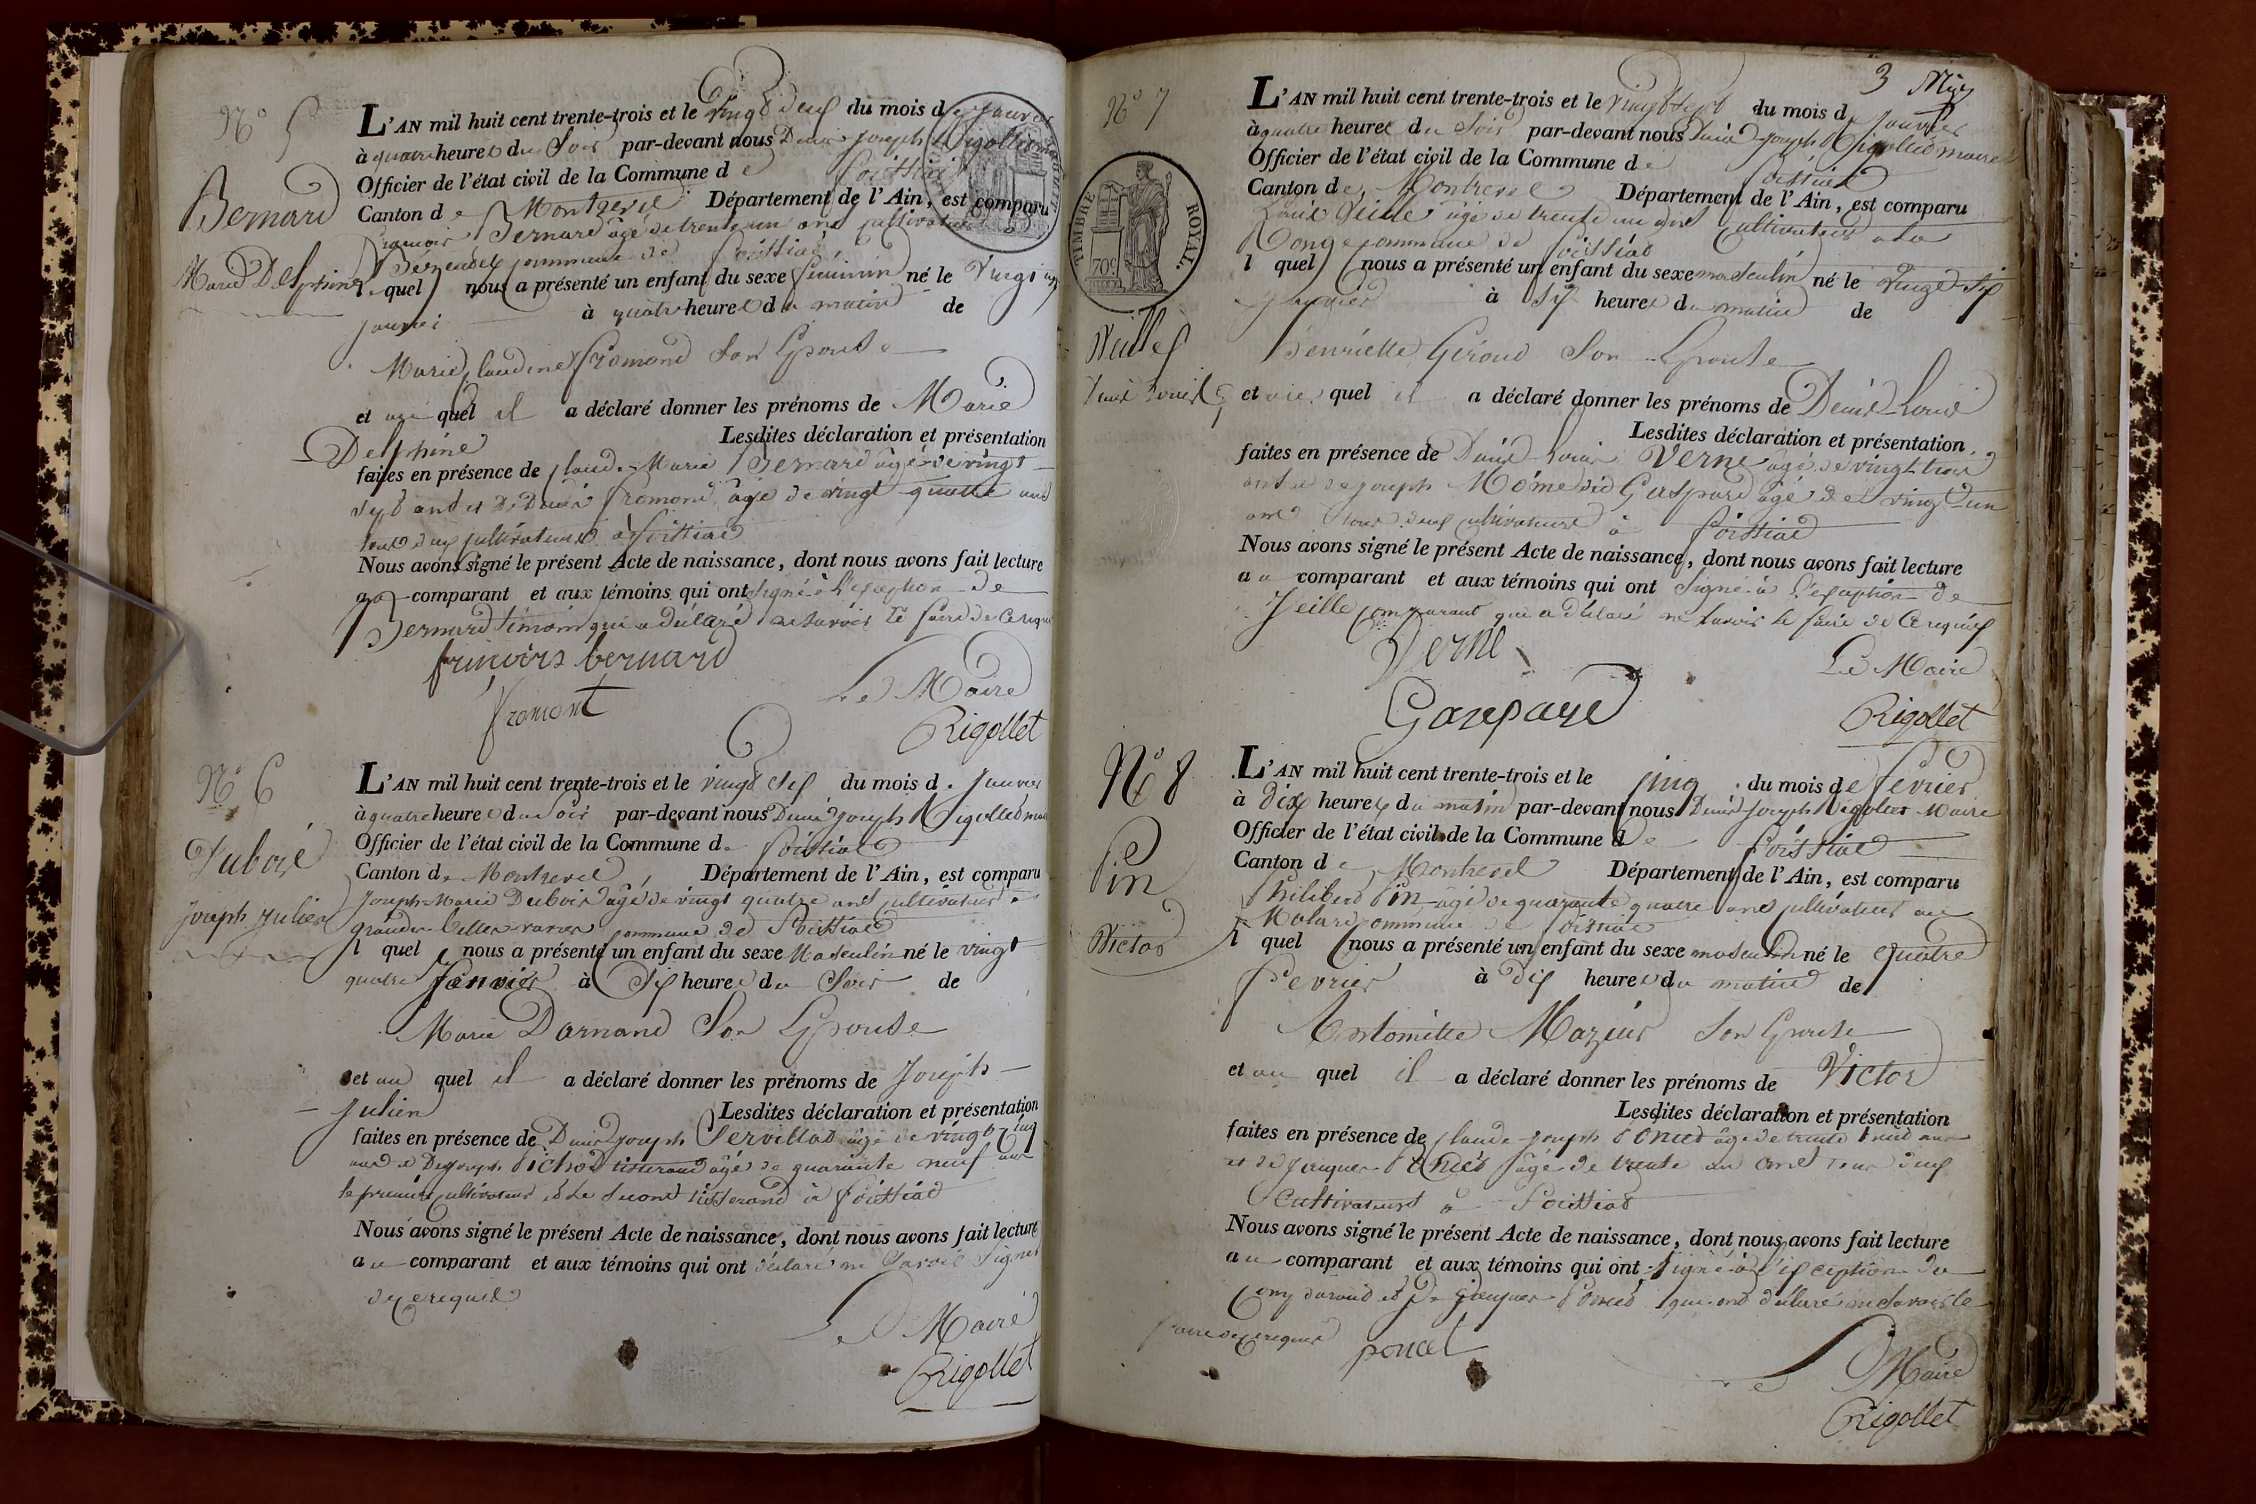 N° 5
Bernard
Marie Delphine
L'AN mil huit cent trente-trois et le vingt deux du mois de Janvier
à quatre heures du Soir par-devant nous Denis Joseph Rigollet
Officier de l'état civil de la Commune de Foissiat
Canton de Montrevel Département de l'Ain, est comparu
François Bernard âgé de trente un ans cultivateur
commune de Foissiat
lequel nous a présenté un enfant du sexe féminin né le Vingt
janvier à quatre heures du matin de
Marie Claudine Fromond Son Epouse
et auquel il a déclaré donner les prénoms de Marie
Delphine Lesdites déclaration et présentation
faites en présence de Claude-Marie Bernard âgé de vingt
sept ans et de Denis Fromond âgé de vingt quatre ans
tous deux cultivateurs à Foissiat
Nous avons signé le présent Acte de naissance, dont nous avons fait lecture
au comparant et aux témoins qui ont signé à l'exception de
Bernard témoin qui a déclaré ne savoir le faire de ce requis
françois bernard
fromont
Le Maire
Rigollet
N° 6
Dubois
Joseph Julien
L'AN mil huit cent trente-trois et le vingt six du mois de Janvier
à quatre heures du Soir par-devant nous Denis Joseph Rigollet maire
Officier de l'état civil de la Commune de Foissiat
Canton de Montrevel, Département de l'Ain, est comparu
Joseph-Marie Dubois âgé de vingt quatre ans cultivateur
commune de Foissiat
lequel nous a présenté un enfant du sexe Masculin né le vingt
quatre Janvier à Six heures du Soir de
Marie Darnand Son Epouse
et au quel il a déclaré donner les prénoms de Joseph
Julien Lesdites déclaration et présentation
faites en présence de Denis Joseph Servillat âgé de vingt cinq
ans et De Joseph Pichod tisserand âgé de quarante neuf ans
le premier cultivateur et le second tisserand à Foissiat
Nous avons signé le présent Acte de naissance, dont nous avons fait lecture
au comparant et aux témoins qui ont déclaré ne Savoir Signer
de ce requis
Le Maire
Rigollet
3
N° 7
TIMBRE ROYAL.
70c
Veille
Denis Louis
L'AN mil huit cent trente-trois et le vingt sept du mois de Janvier
à quatre heures du Soir par-devant nous Denis Joseph Rigollet maire
Officier de l'état civil de la Commune de Foissiat
Canton de Montrevel Département de l'Ain, est comparu
Louis Veille âgé de trente un ans Cultivateur a la
Ronge commune de Foissiat
lequel nous a présenté un enfant du sexe masculin né le vingt-six
janvier à Six heures du matin de
Henriette Géroud Son Epouse
et au quel il a déclaré donner les prénoms de Denis Louis
Lesdites déclaration et présentation
faites en présence de Denis-Louis Verne âgé de vingt-trois
ans et de joseph Mome did Gaspard âgé de vingt-un
ans tous deux cultivateurs à Foissiat
Nous avons signé le présent Acte de naissance, dont nous avons fait lecture
au comparant et aux témoins qui ont signé à l'exception de
Veille comparant qui a déclaré ne savoir le faire de ce requis
Verne
Gaspard
Le Maire
Rigollet
N° 8
Pin
Victor
L'AN mil huit cent trente-trois et le cinq du mois de Fevrier
à Dix heures du matin par-devant nous Denis Joseph Rigollet Maire
Officier de l'état civil de la Commune de Foissiat
Canton de Montrevel Département de l'Ain, est comparu
Philibert Pin âgé de quarante quatre ans cultivateur au
Molard commune de Foissiat
lequel nous a présenté un enfant du sexe masculin né le Quatre
Fevrier à Dix heures du matin de
Antoinette Mazuir Son Epouse
et au quel il a déclaré donner les prénoms de Victor
Lesdites déclaration et présentation
faites en présence de Claude-Joseph Poncet âgé de trente huit ans
et de Jacques Poncet âgé de trente un ans tous deux
Cultivateurs à Foissiat
Nous avons signé le présent Acte de naissance, dont nous avons fait lecture
au comparant et aux témoins qui ont signé à l'exception du
Comparant et de Jacques Poncet qui ont déclaré ne savoir le
faire de ce requis
poncet
Le Maire
Rigollet